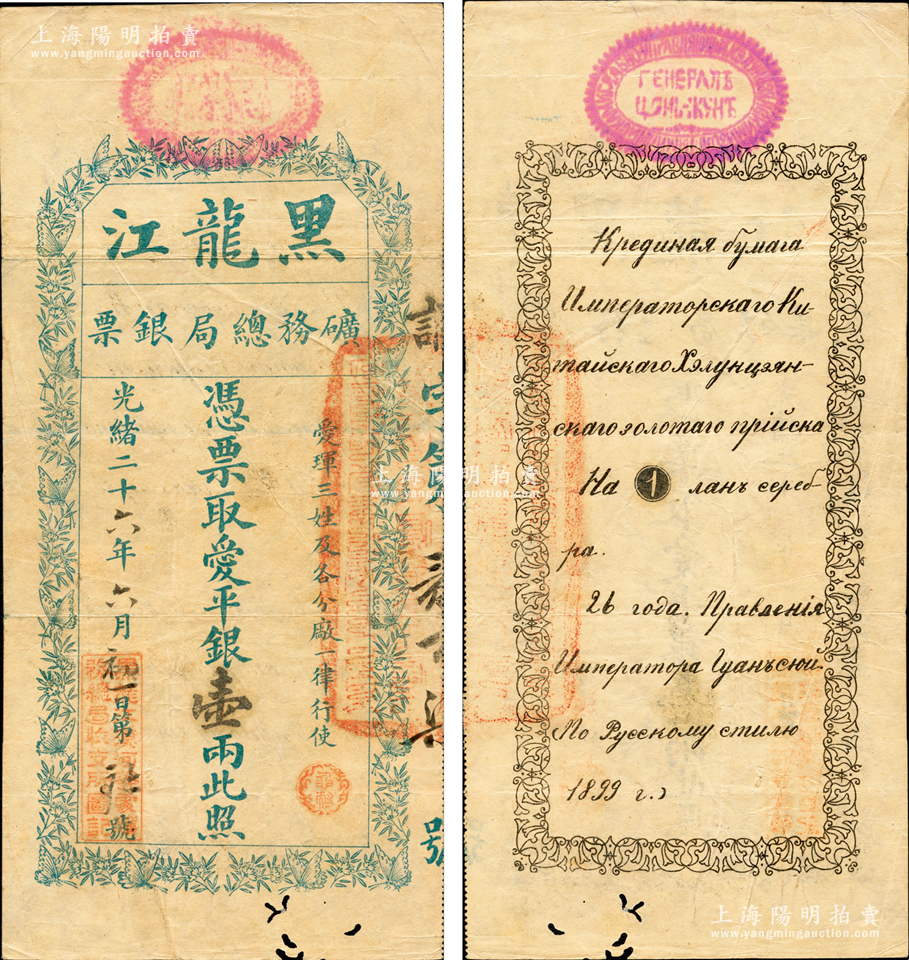 上海陽明拍賣
www.yangmingauction.com
黑龍江
礦務總局銀票
愛琿三姓及各分廠一律行使
憑票取愛平銀壹兩此照
光緒二十六年六月初一日第
號
號
ГЕНЕРАЛЪ
ЦЗНЬ-ЖУНЪ
Крединая бумага
Императорскаго Ки-
тайскаго Хэлунцзян-
скаго золотаго прійска
На 1 ланъ сереб-
ра.
26 года. Правленія
Императора Гуанъсюй.
По Русскому стилю
1899 г.
上海陽明拍賣
www.yangmingauction.com
上海陽明拍賣
www.yangmingauction.com